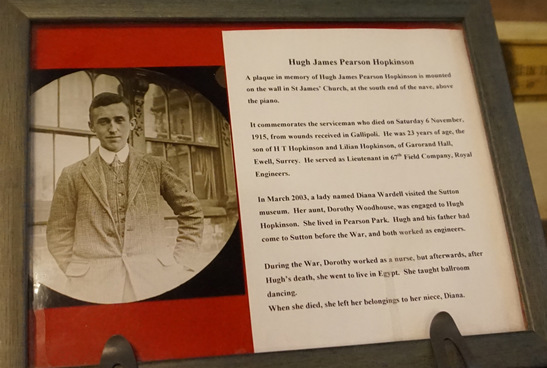 Hugh James Pearson Hopkinson
A plaque in memory of Hugh James Pearson Hopkinson is mounted
on the wall in St James' Church, at the south end of the nave, above
the piano.
It commemorates the serviceman who died on Saturday 6 November,
1915, from wounds received in Gallipoli. He was 23 years of age, the
son of H T Hopkinson and Lilian Hopkinson, of Garorand Hall,
Ewell, Surrey. He served as Lieutenant in 67th Field Company, Royal
Engineers.
In March 2003, a lady named Diana Wardell visited the Sutton
museum. Her aunt, Dorothy Woodhouse, was engaged to Hugh
Hopkinson. She lived in Pearson Park. Hugh and his father had
come to Sutton before the War, and both worked as engineers.
During the War, Dorothy worked as a nurse, but afterwards, after
Hugh's death, she went to live in Egypt. She taught ballroom
dancing.
When she died, she left her belongings to her niece, Diana.